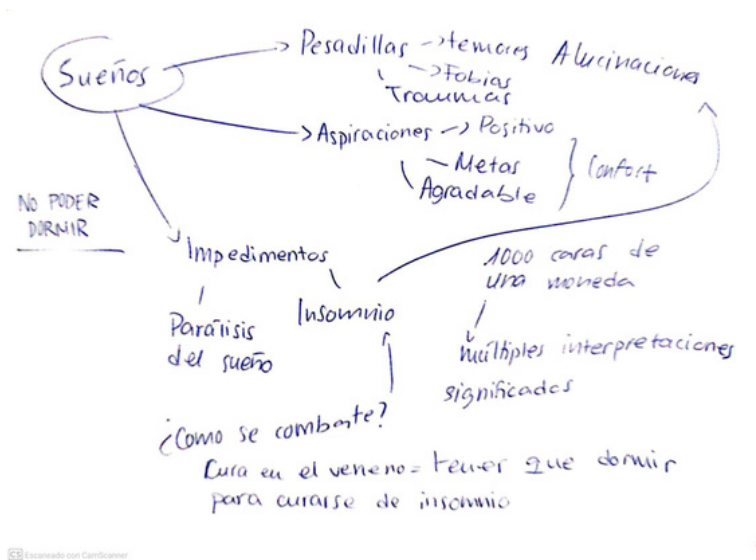 Sueños
-> Pesadillas -> temores
-> Fobias
Traumas
Alucinaciones
-> Aspiraciones -> Positivo
- Metas
Agradable
Confort
NO PODER
DORMIR
Impedimentos
Parálisis
del sueño
Insomnio
1000 caras de
una moneda
múltiples interpretaciones
significados
¿Como se combate?
Cura en el veneno = tener que dormir
para curarse de insomnio
CS Escaneado con CamScanner